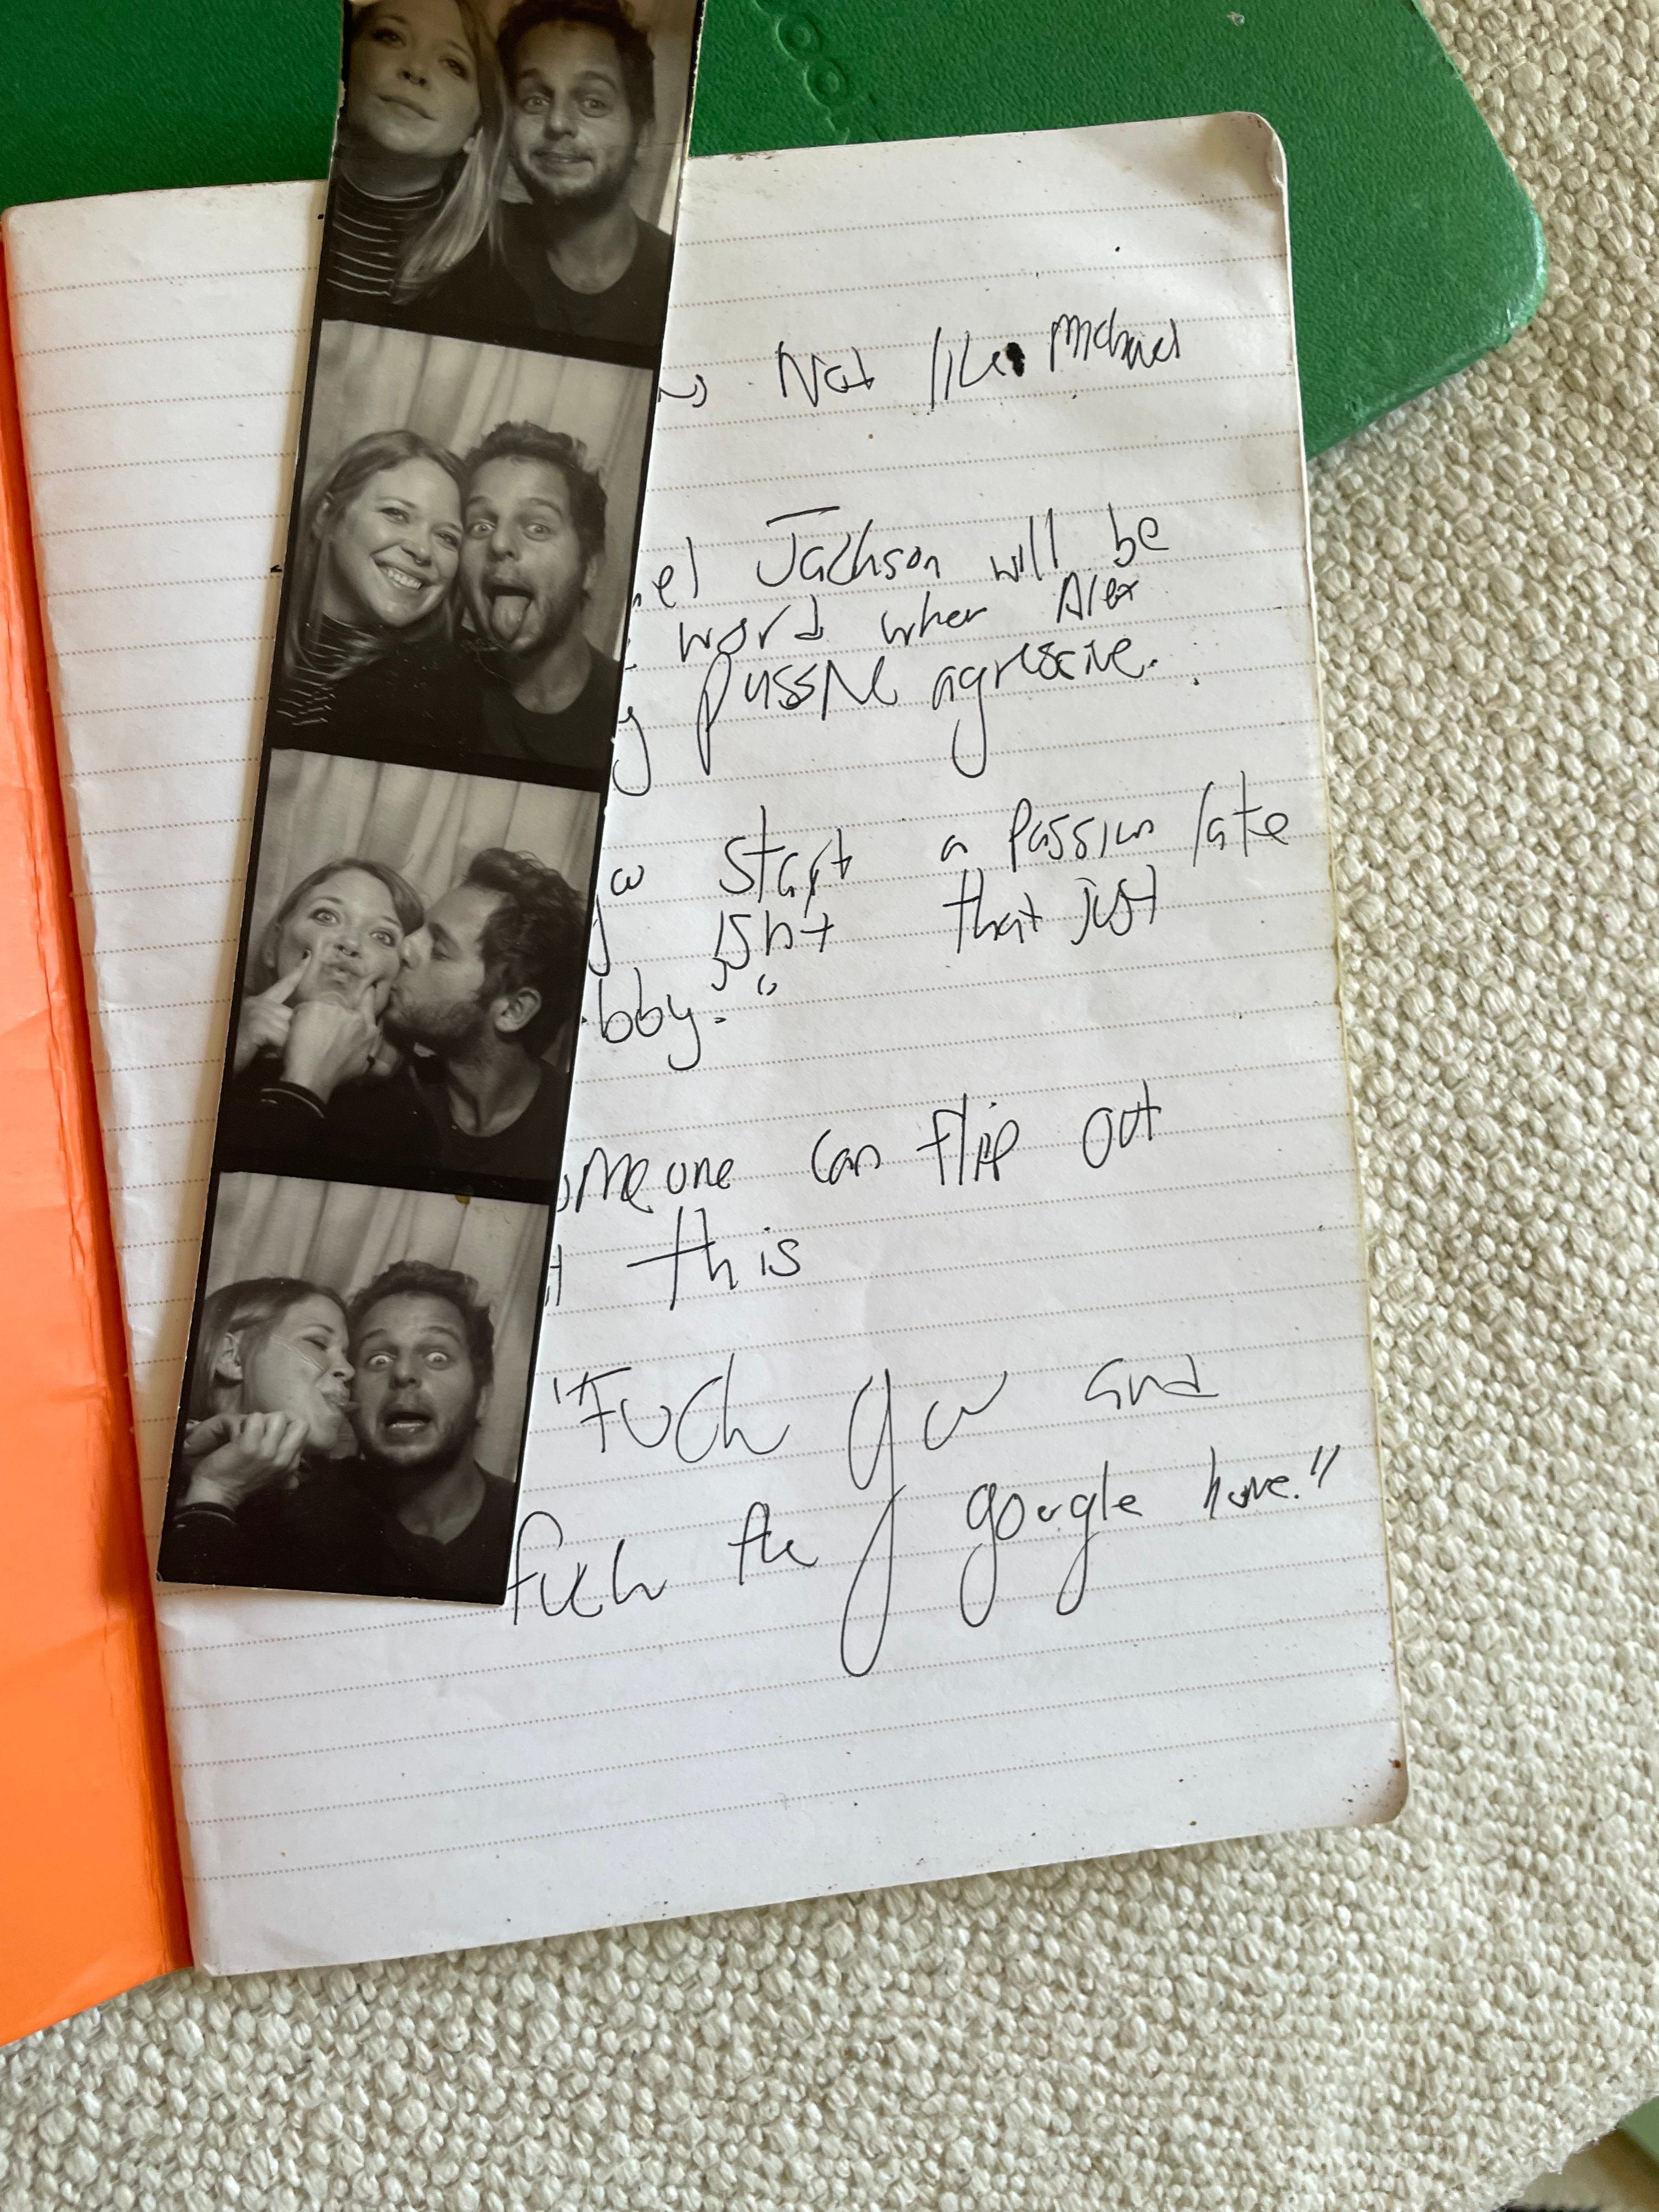 Not like Michael
el Jackson will be
word when Alex
g passive agressive.
w start a passion late
isnt that just
bby?"
omeone can flip out
t this
"Fuck you and
fuck the google home."